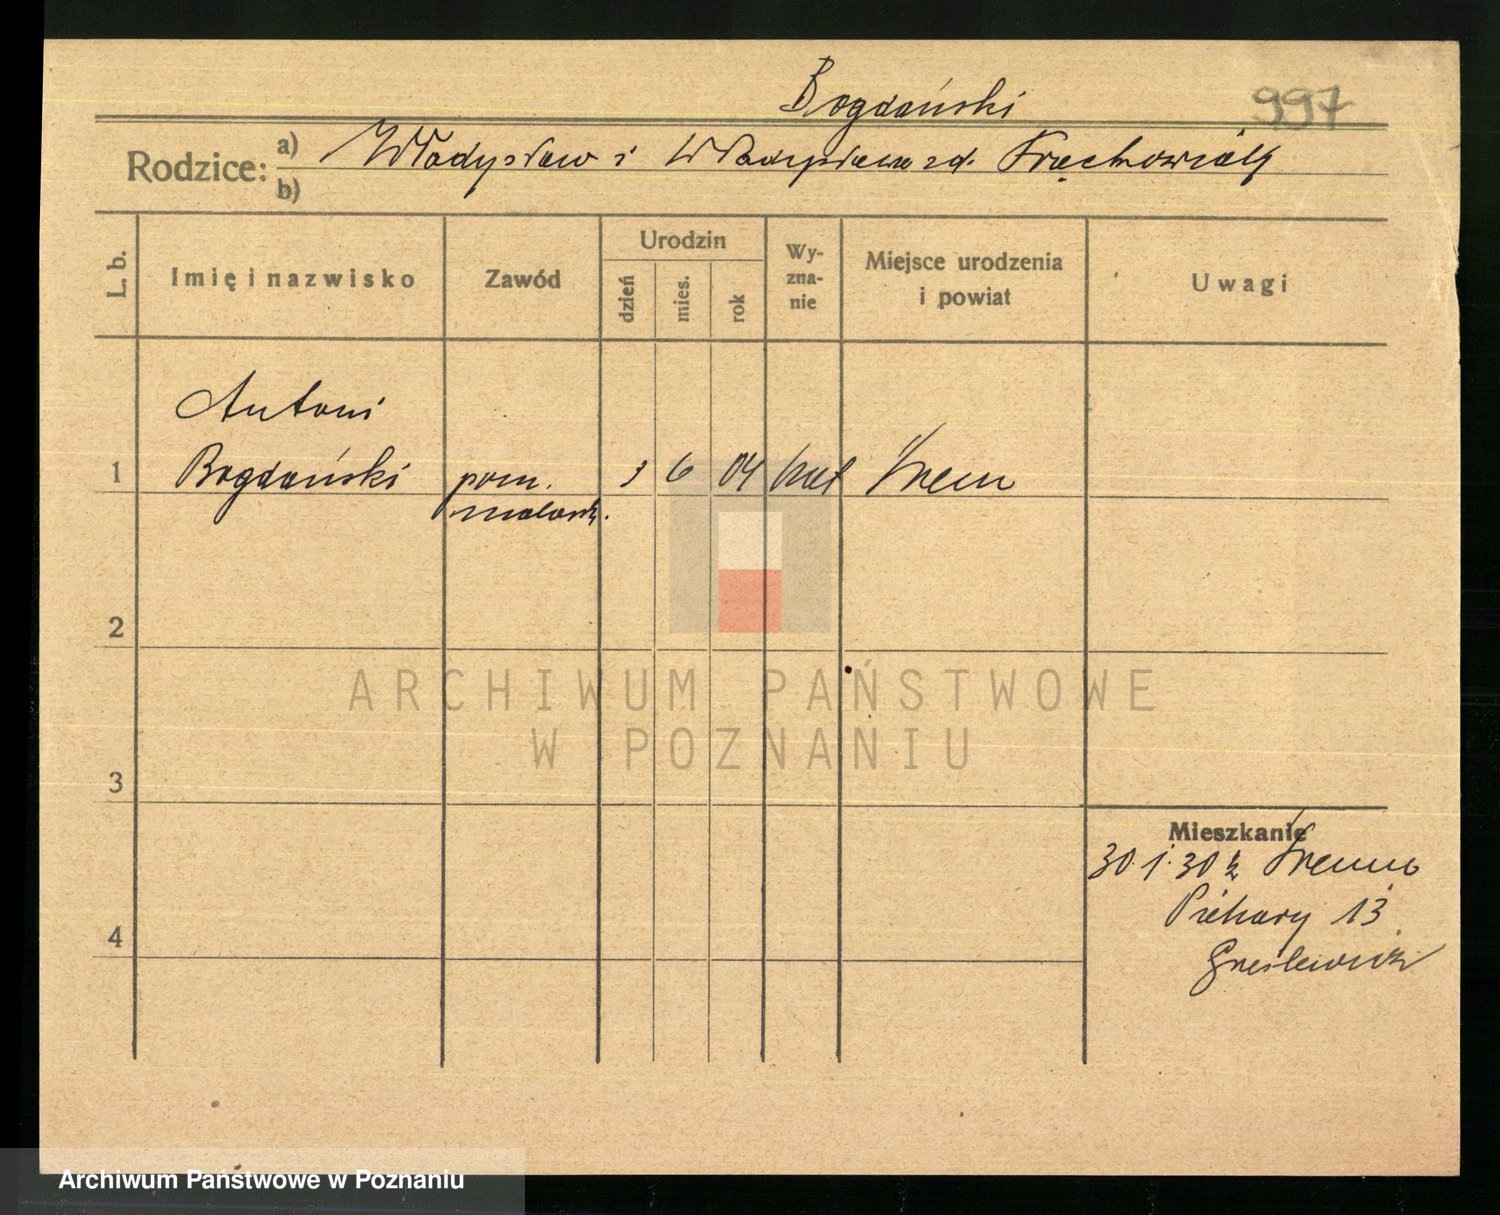 Bogdański
997
Rodzice: a) Władysław i Władysława zd.
b)
L. b.
Imię i nazwisko
Zawód
Urodzin
dzień
mies.
rok
Wy-
zna-
nie
Miejsce urodzenia
i powiat
Uwagi
Antoni
1 Bogdański pom. 6 04 kat Śrem
malarsk.
2
ARCHIWUM PAŃSTWOWE
W POZNANIU
3
Mieszkanie
30.1.30 z Śremu
Piekary 13
4
Archiwum Państwowe w Poznaniu